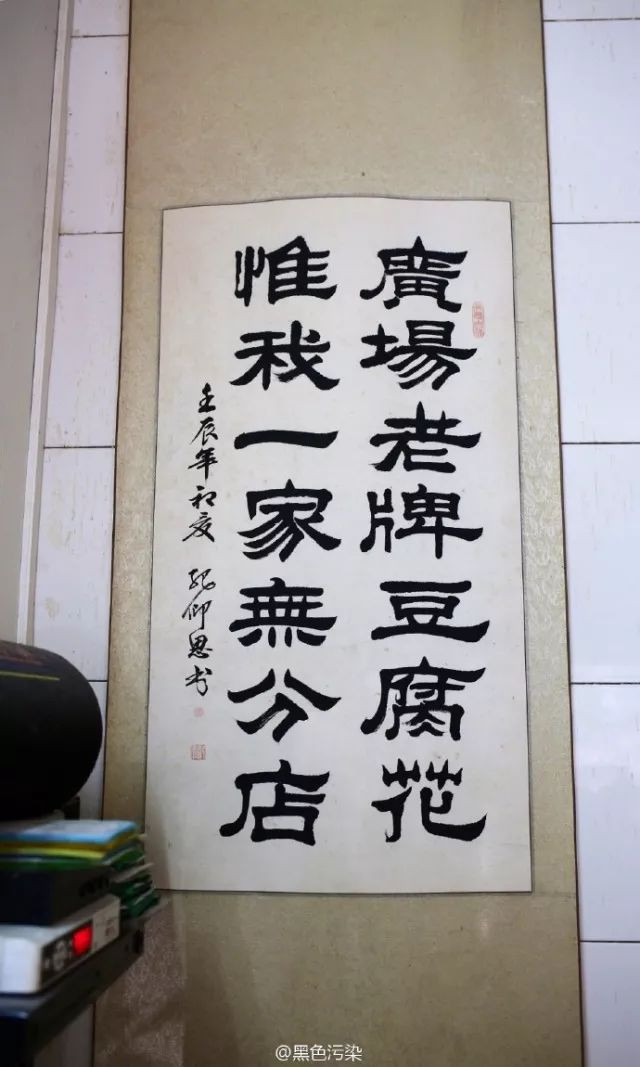 廣場老牌豆腐花
惟我一家無分店
壬辰年初夏 仰恩书
@黑色污染